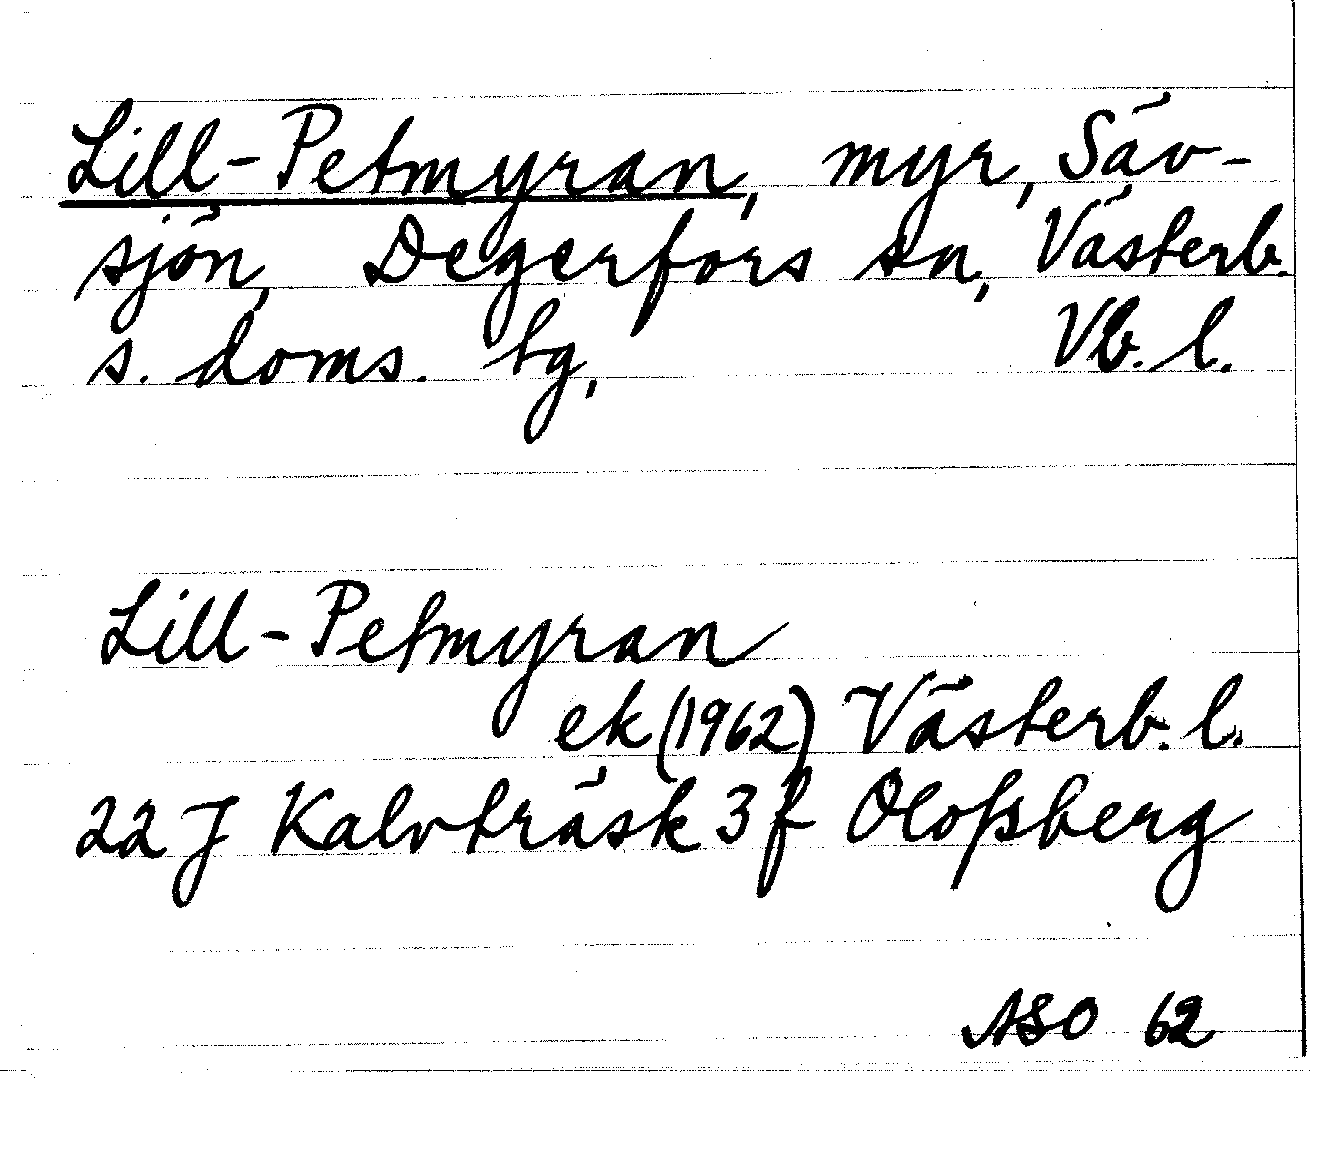 Lill-Petmyran, myr, Säv-
sjön, Degerfors sn, Västerb.
s. doms. tg, Vb. l.
Lill-Petmyran
ek (1962) Västerb. l.
22 J Kalvträsk 3 f Olofsberg
ASO 62